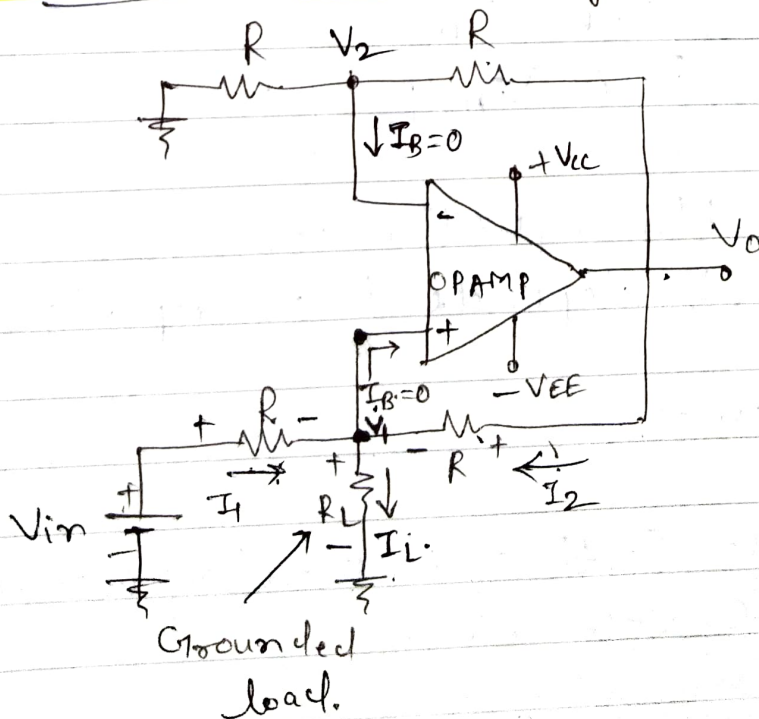 R V2 R
↓ IB=0
+Vcc
-
V0
OPAMP
+
IB=0
-VEE
+ R - V1
+ - R +
I1 I2
Vin
+
-
RL
- IL.
Grounded
load.